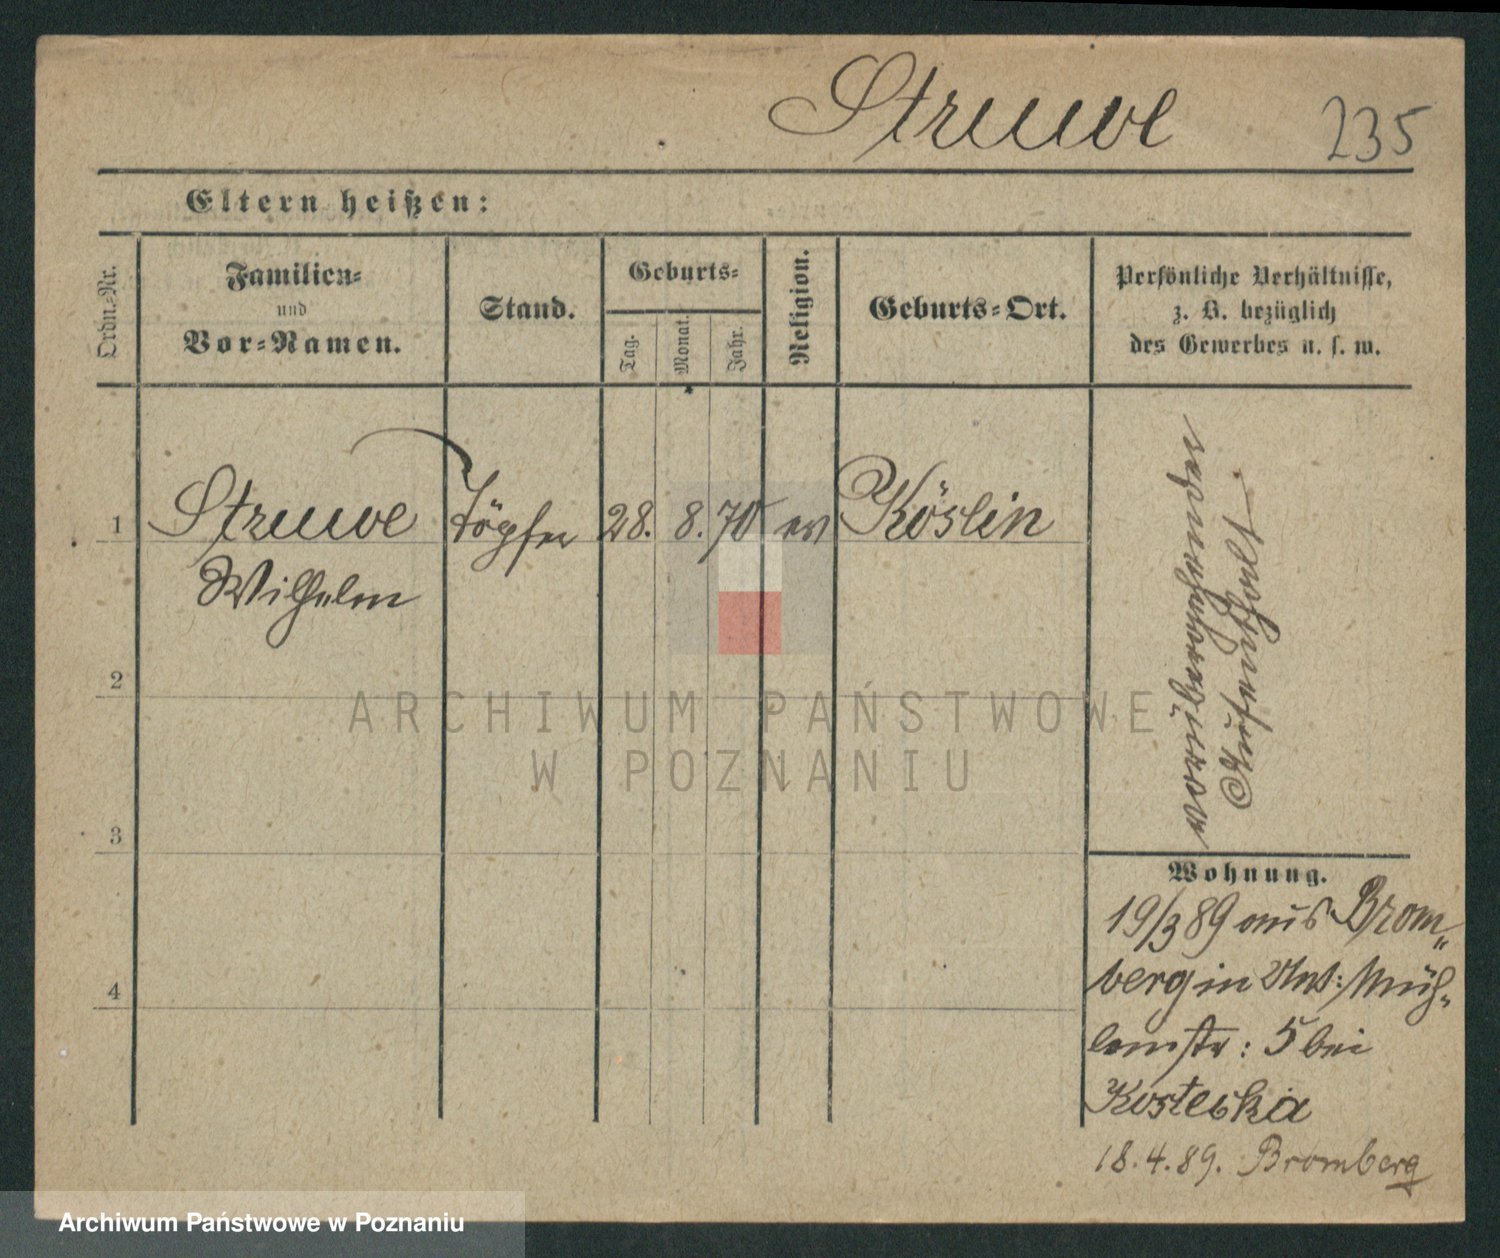 Struwe 235
Eltern heißen:
Ordn.-Nr.
Familien-
und
Vor-Namen.
Stand.
Geburts-
Tag.
Monat.
Jahr.
Religion.
Geburts-Ort.
Persönliche Verhältnisse,
z. B. bezüglich
des Gewerbes u. s. w.
1 Struwe Töpfer 28. 8. 70 ev Köslin
Wilhelm
2
3
4
Wohnung.
19/3 89 aus Brom-
berg in Unt: Müh-
lenstr: 5 bei
Kosteckia
18.4.89. Bromberg
ARCHIWUM PAŃSTWOWE
W POZNANIU
Archiwum Państwowe w Poznaniu